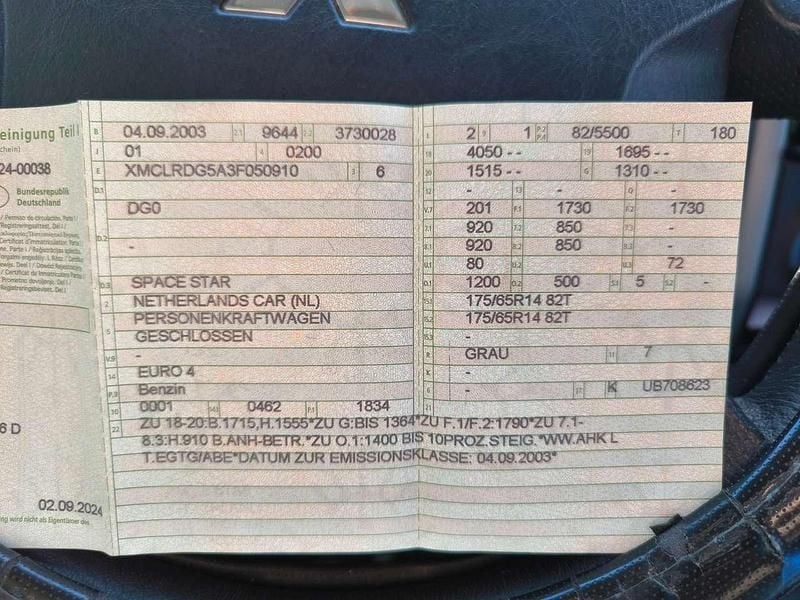 einigung Teil I
chein)
24-00038
Bundesrepublik
Deutschland
6 D
02.09.2024
ng wird nicht als Eigentümer des
B 04.09.2003 2.1 9644 2.2 3730028
J 01 4 0200
E XMCLRDG5A3F050910 3 6
D.1
DG0
D.2 -
D.3 SPACE STAR
2 NETHERLANDS CAR (NL)
5 PERSONENKRAFTWAGEN
GESCHLOSSEN
V.9 -
14 EURO 4
P.3 Benzin
10 0001 14.1 0462 P.1 1834
22 ZU 18-20:B.1715,H.1555*ZU G:BIS 1364*ZU F.1/F.2:1790*ZU 7.1-
8.3:H.910 B.ANH-BETR.*ZU O.1:1400 BIS 10PROZ.STEIG.*WW.AHK L
T.EGTG/ABE*DATUM ZUR EMISSIONSKLASSE: 04.09.2003*
L 2 9 1 P.2 P.4 82/5500 T 180
18 4050 - - 19 1695 - -
20 1515 - - G 1310 - -
12 - 13 - Q -
V.7 201 F.1 1730 F.2 1730
7.1 920 7.2 850 7.3 -
8.1 920 8.2 850 8.3 -
U.1 80 U.2 U.3 72
O.1 1200 O.2 500 S.1 5 S.2 -
15.1 175/65R14 82T
15.2 175/65R14 82T
15.3 -
R GRAU 11 7
K -
6 - 17 K 16 UB708623
21